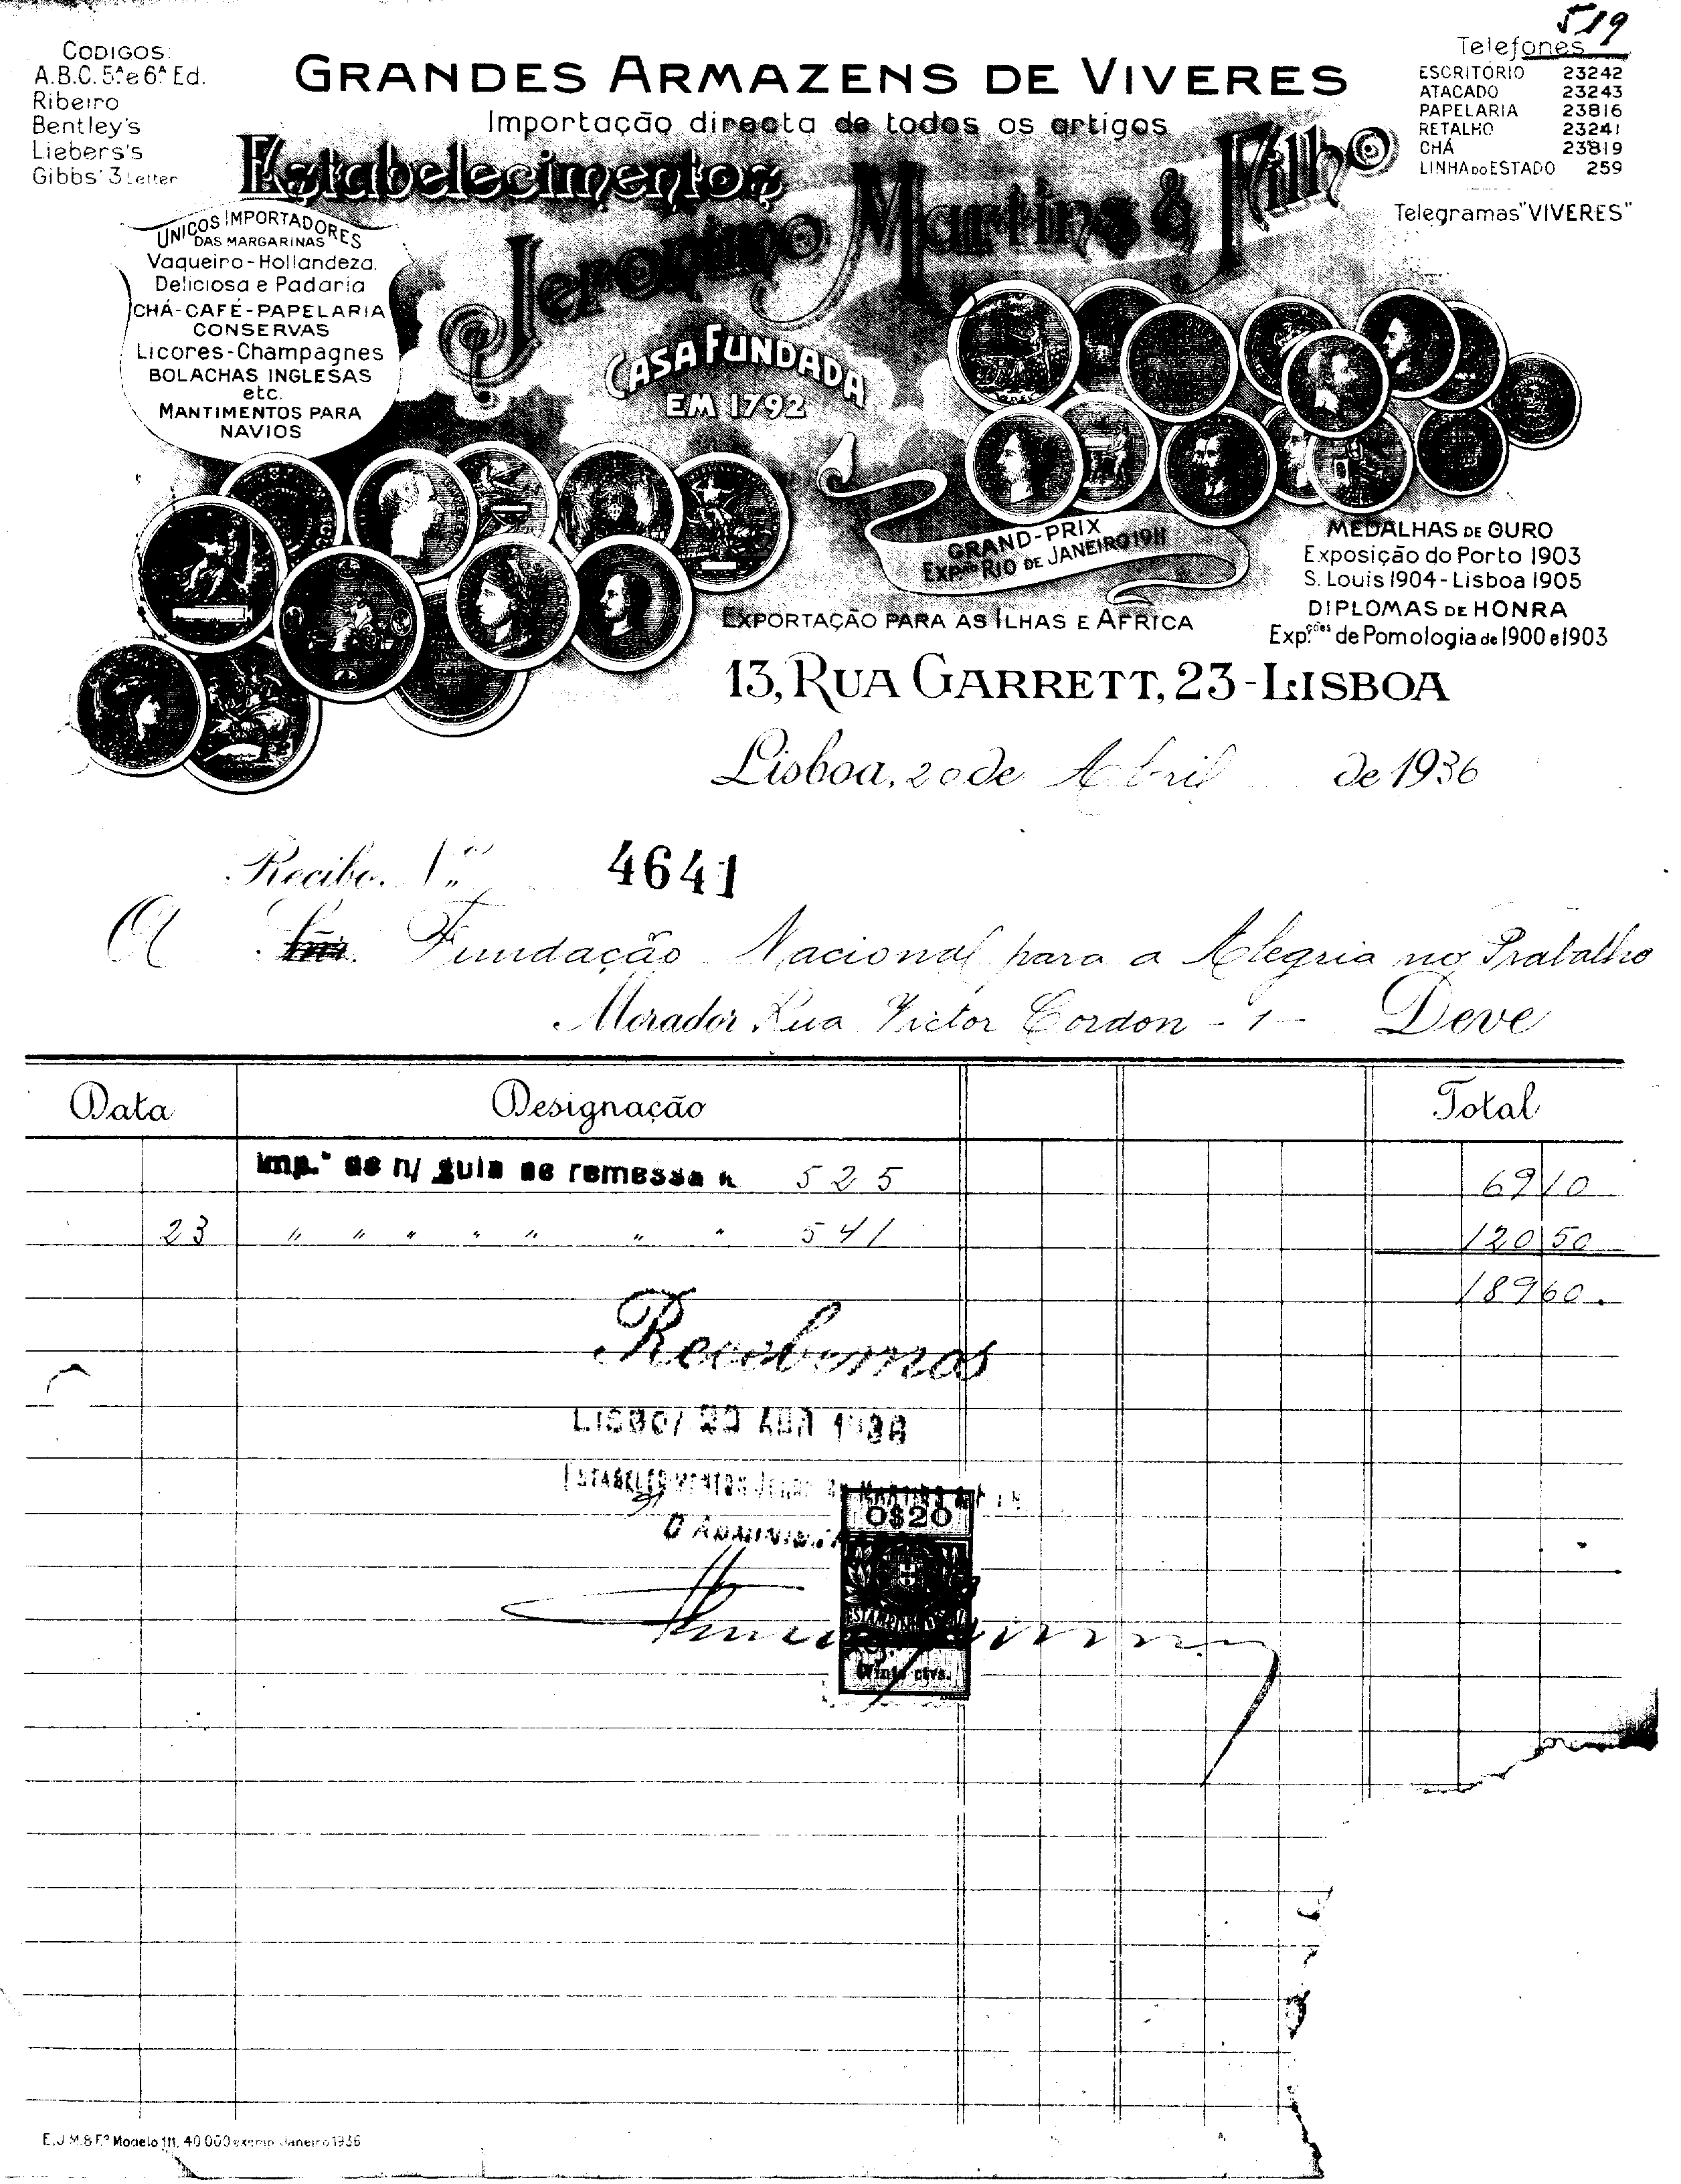 519
CODIGOS:
A.B.C. 5ª e 6ª Ed.
Ribeiro
Bentley's
Liebers's
Gibbs' 3 Letter
GRANDES ARMAZENS DE VIVERES
Importação directa de todos os artigos
Estabelecimentos
Jeronimo Martins & Filho
CASA FUNDADA
EM 1792
Telefones
ESCRITÓRIO 23242
ATACADO 23243
PAPELARIA 23816
RETALHO 23241
CHÁ 23819
LINHA DO ESTADO 259
Telegramas "VIVERES"
UNICOS IMPORTADORES
DAS MARGARINAS
Vaqueiro-Hollandeza.
Deliciosa e Padaria
CHÁ-CAFÉ-PAPELARIA
CONSERVAS
Licores-Champagnes
BOLACHAS INGLESAS
etc.
MANTIMENTOS PARA
NAVIOS
GRAND-PRIX
EXP. RIO DE JANEIRO 1911
MEDALHAS DE OURO
Exposição do Porto 1903
S. Louis 1904-Lisboa 1905
DIPLOMAS DE HONRA
Exp.ções de Pomologia de 1900 e 1903
EXPORTAÇÃO PARA AS ILHAS E AFRICA
13, RUA GARRETT, 23-LISBOA
Lisboa, 20 de Abril de 1936
Recibo. Nº 4641
A Fundação Nacional para a Alegria no Trabalho
Morador Rua Victor Cordon - 1 - Deve
Data Designação Total
Imp.ª de n/ guia de remessa n. 525 69 10
23 " " " " " " " 541 120 50
189 60.
Recebemos
LISBOA 23 ABR 1936
ESTABELECIMENTOS JERONIMO MARTINS &
O ADMINIS
0$20
Vinte ctvs.
E.J.M.& Fº Modelo 111. 40.000 exemp. Janeiro 1936